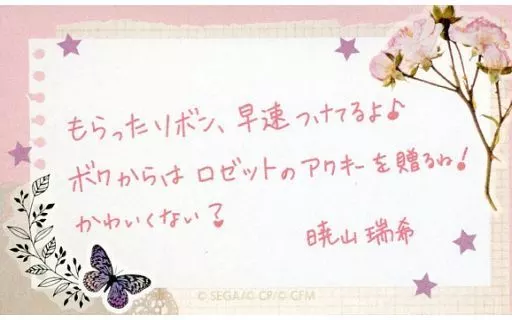 もらったリボン、早速つけてるよ♪
ボクからは ロゼットのアクキーを贈るね！
かわいくない？
暁山 瑞希
© SEGA/© CP/© CFM